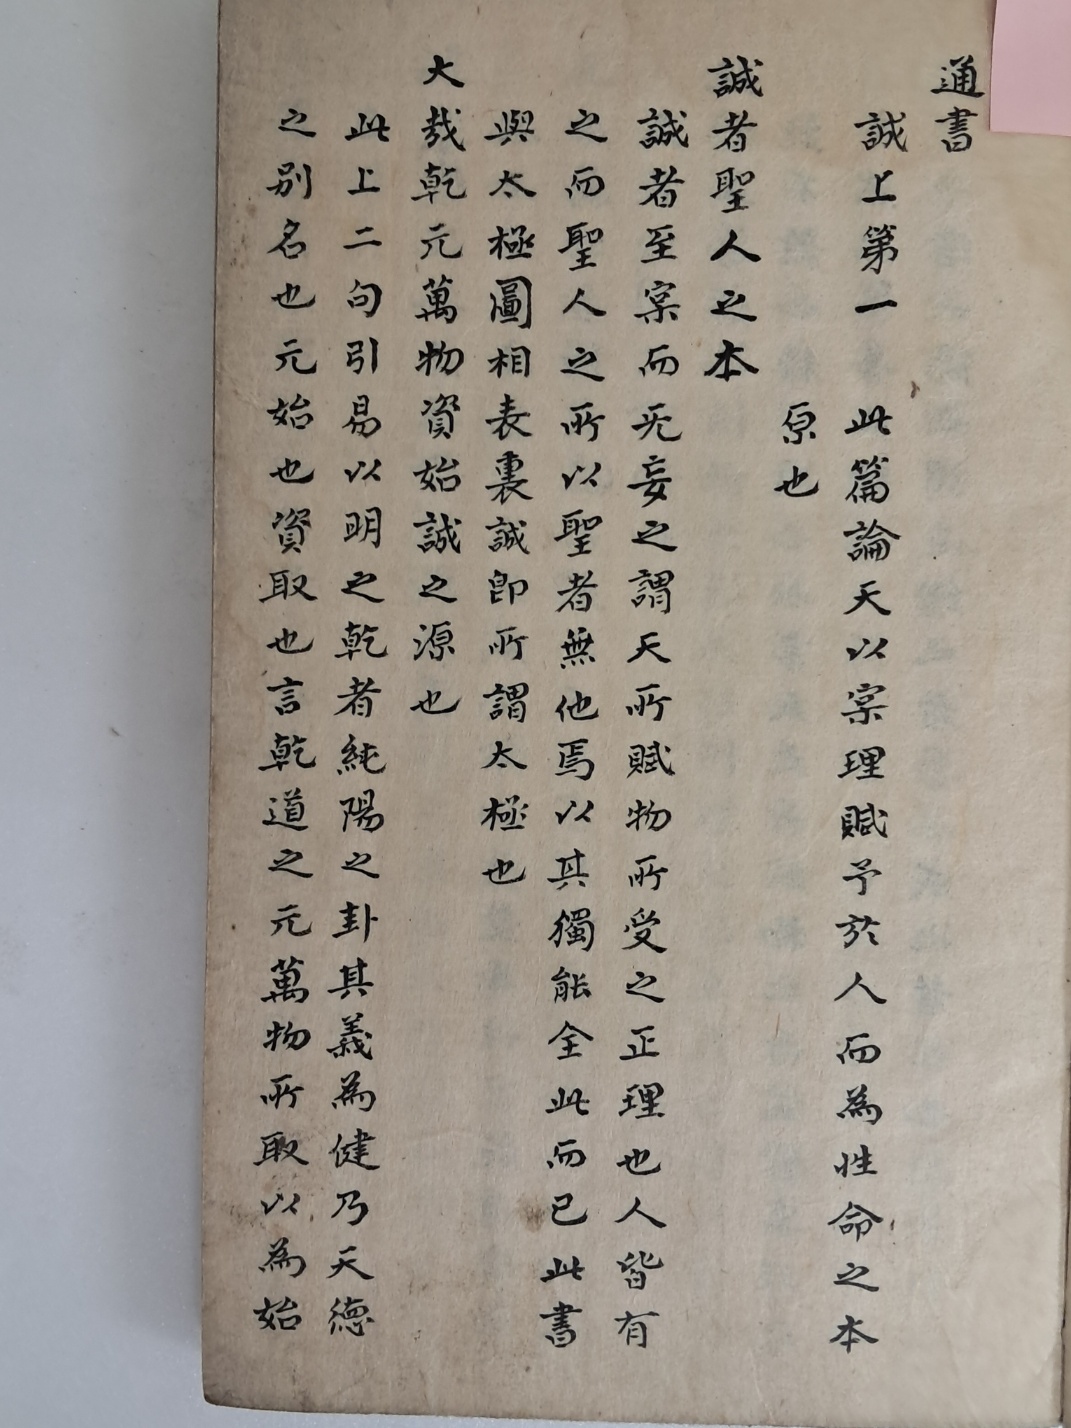 通書
誠上第一　此篇論天以宲理賦予於人而為性命之本
原也
誠者聖人之本
誠者至宲而旡妄之謂天所賦物所受之正理也人皆有
之而聖人之所以聖者無他焉以其獨能全此而已此書
與太極圖相表裏誠即所謂太極也
大哉乾元萬物資始誠之源也
此上二句引易以明之乾者純陽之卦其義為健乃天德
之別名也元始也資取也言乾道之元萬物所取以為始